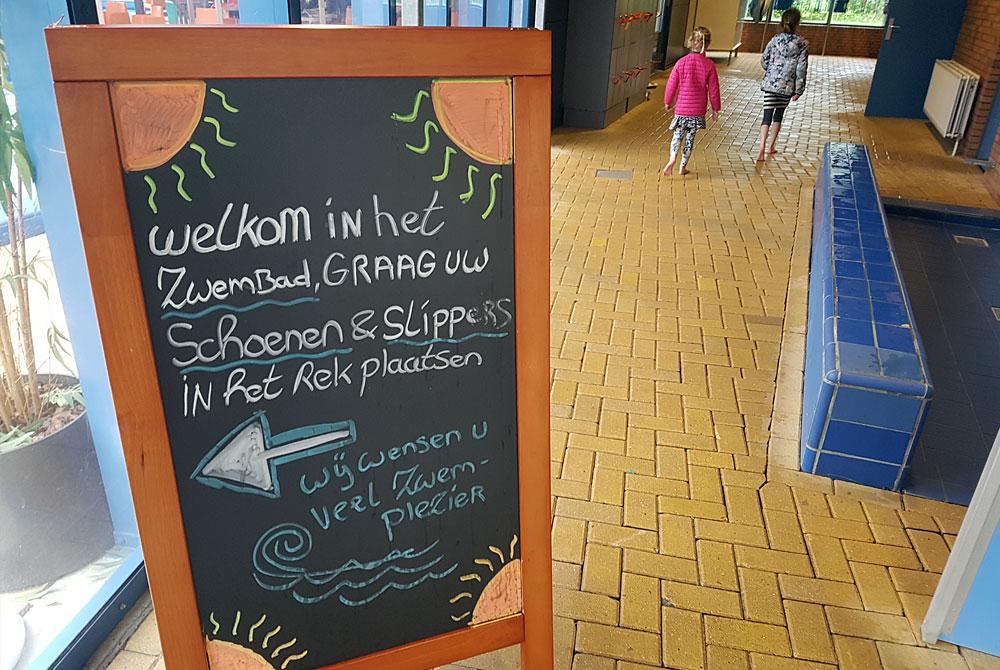 welkom in het
ZwemBad, GRAAG UW
Schoenen & Slippers
in het Rek plaatsen
wij wensen u
veel Zwem-
plezier